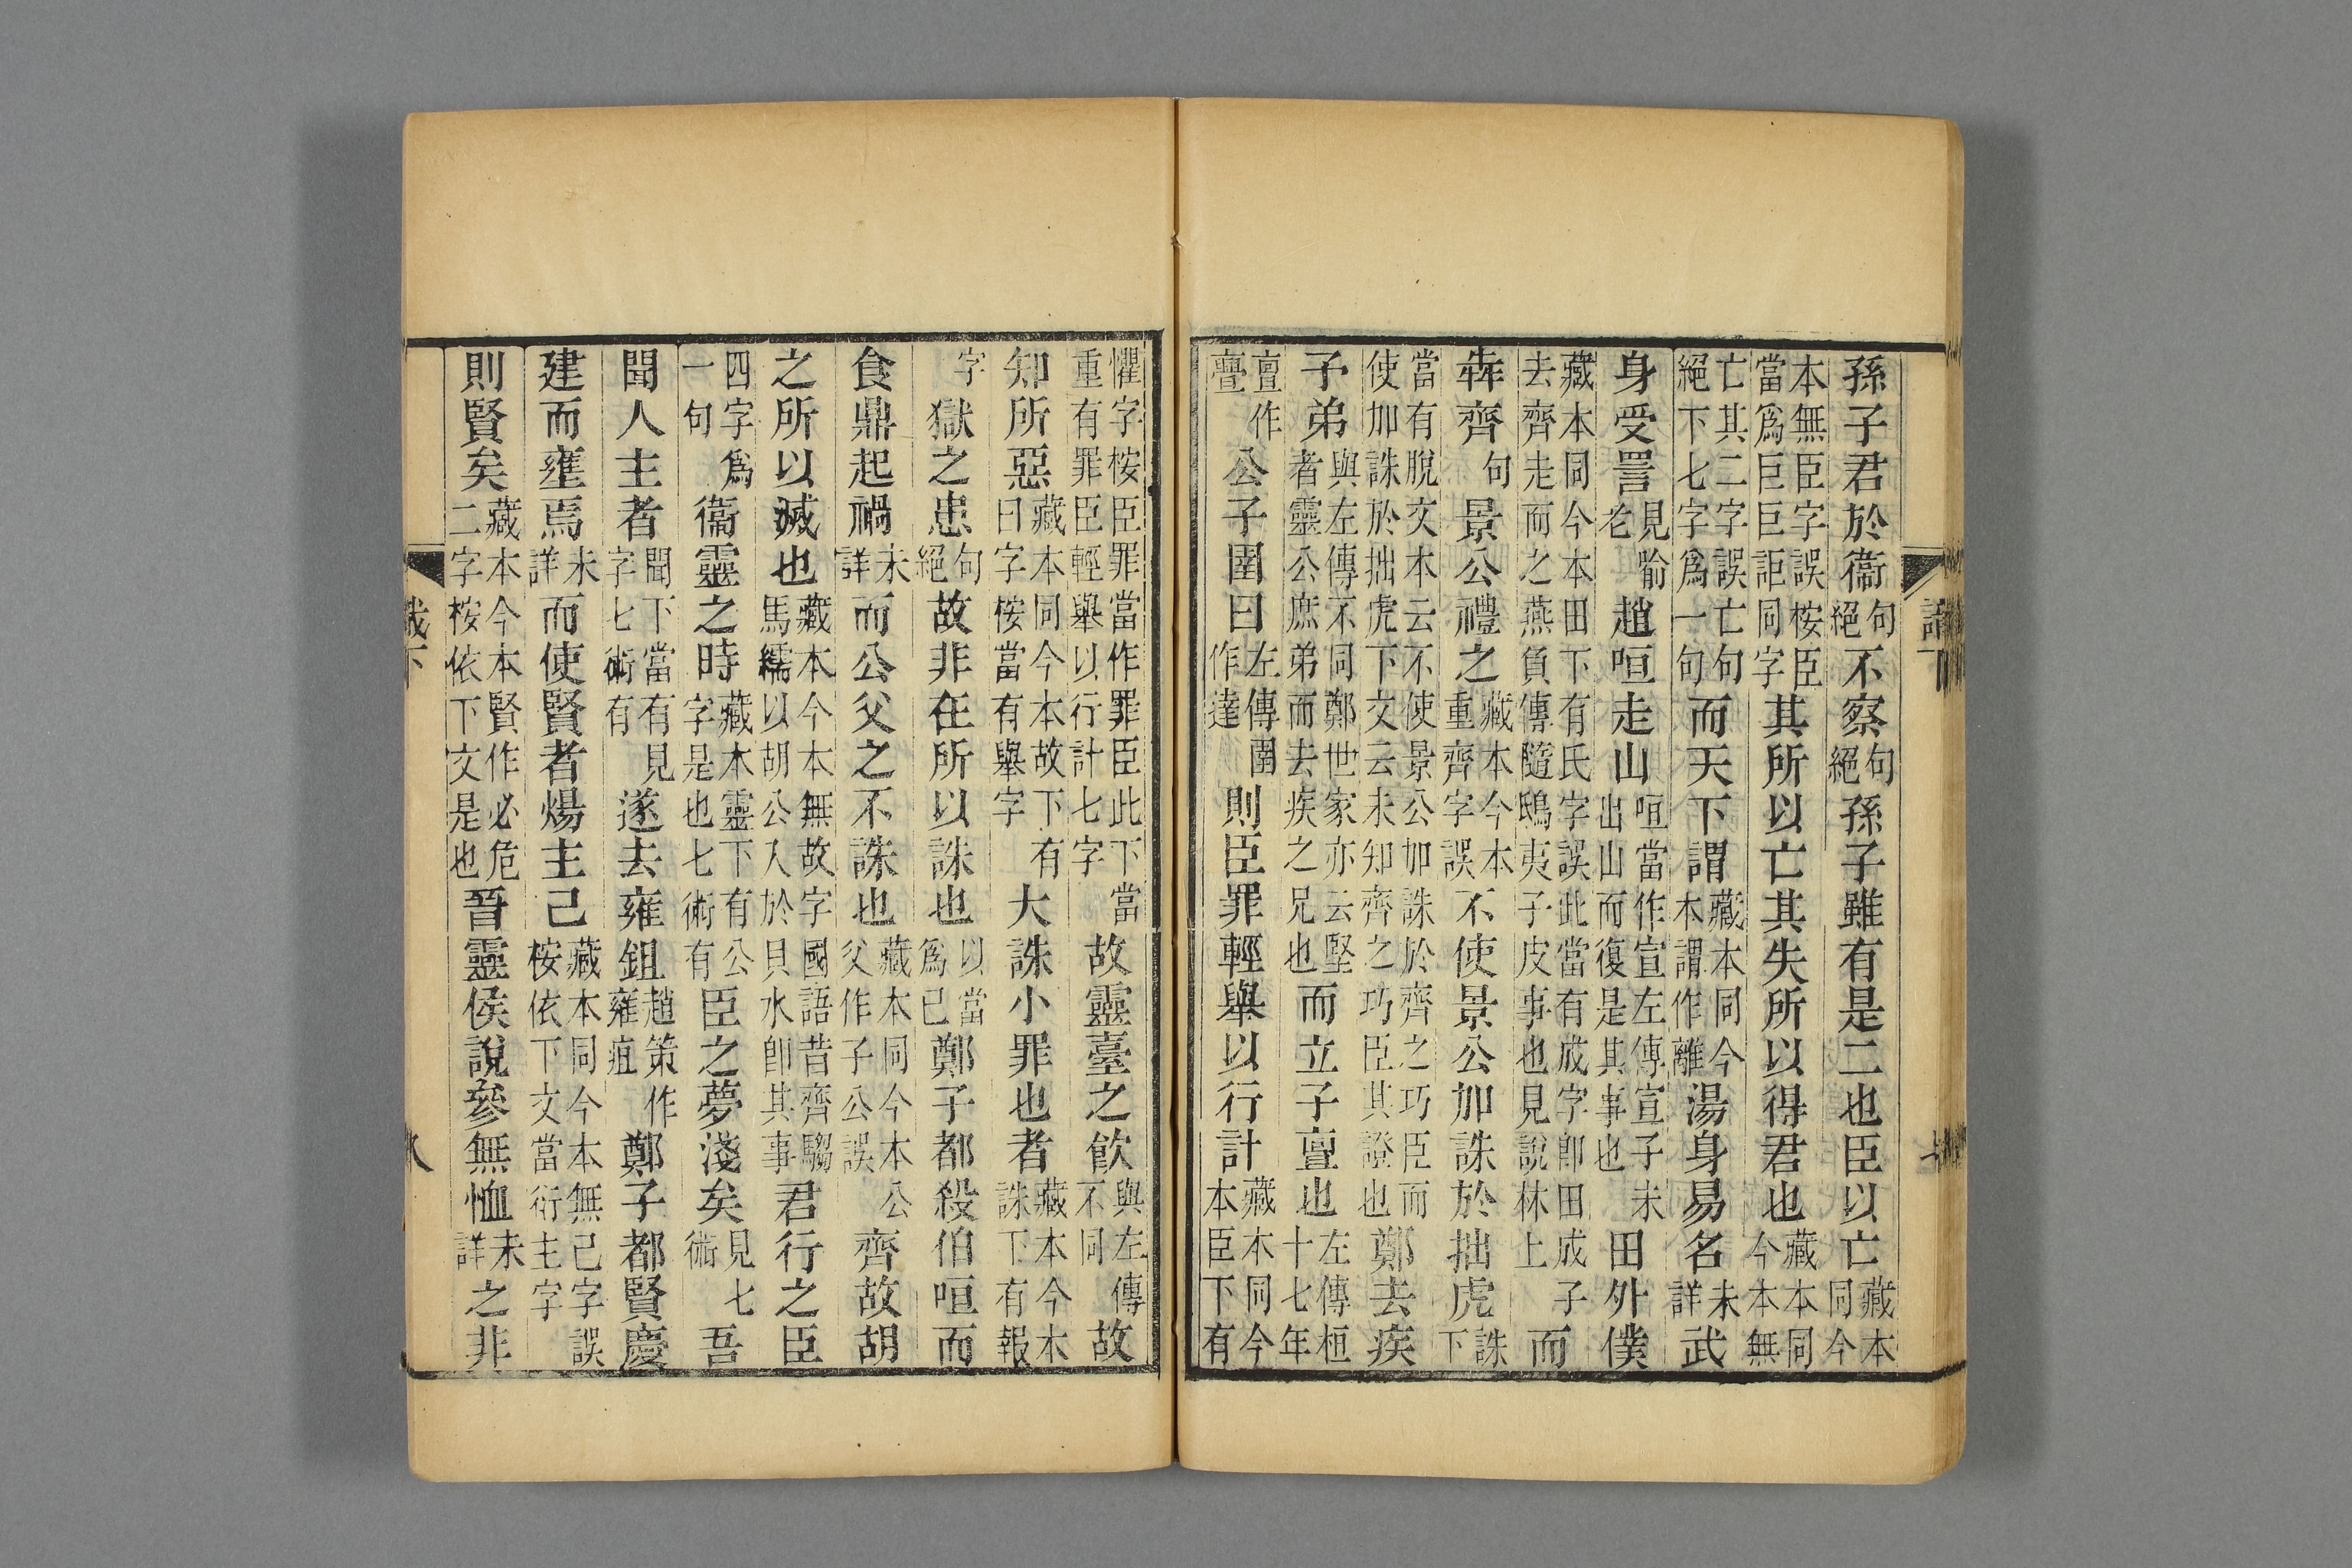 孫子君於衞句絕不察句絕孫子雖有是二也臣以亡藏本同今
本無臣字誤桉臣當爲巨巨詎同字其所以亡其失所以得君也藏本同今本無
亡其二字誤亡句絕下七字爲一句而天下謂藏本同今本謂作離湯身易名未詳武
身受詈見喻老趙咺走山咺當作宣左傳宣子未出山而復是其事也田外僕
藏本同今本田下有氏字誤此當有成字卽田成子去齊走而之燕負傳隨鴟夷子皮事也見說林上而
犇齊句景公禮之藏本今本重齊字誤不使景公加誅於拙虎誅下
當有脫文本云不使景公加誅於齊之巧臣而使加誅於拙虎下文云未知齊之巧臣其證也鄭去疾
予弟與左傳不同鄭世家亦云堅者靈公庶弟而去疾之兄也而立子亶也左傳桓十七年
亶作亹公子圉曰左傳圉作達則臣罪輕舉以行計藏本同今本臣下有
懼字桉臣罪當作罪臣此下當重有罪臣輕舉以行計七字故靈臺之飮與左傳不同故
知所惡藏本同今本故下有曰字桉當有舉字大誅小罪也者藏本今本誅下有報
字獄之患句絕故非在所以誅也以當爲已鄭子都殺伯咺而
食鼎起禍未詳而公父之不誅也藏本同今本公父作子公誤齊故胡
之所以滅也藏本今本無故字國語昔齊騶馬繻以胡公入於貝水卽其事君行之臣
四字爲一句衞靈之時藏本靈下有公字是也七術有臣之夢淺矣見七術吾
聞人主者聞下當有見字七術有遂去雍鉏趙策作雍疽鄭子都賢慶
建而壅焉未詳而使賢者煬主己藏本同今本無己字誤桉依下文當衍主字
則賢矣藏本今本賢作必危二字桉依下文是也晉靈侯說參無恤未詳之非